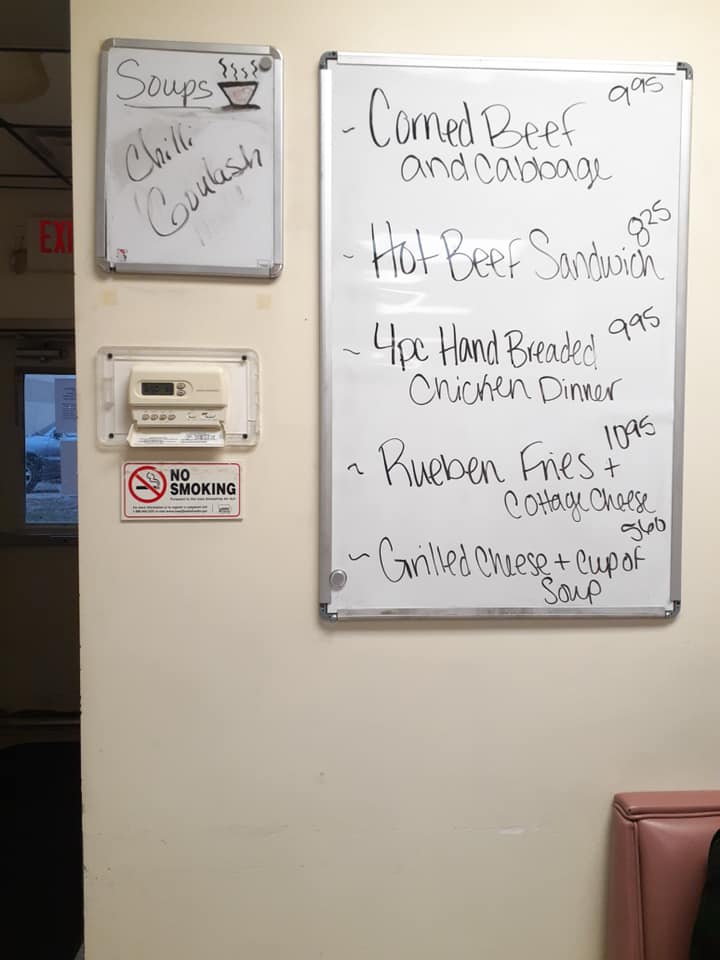 Soups
Chilli
Goulash
EXI
NO
SMOKING
- Corned Beef 995
and Cabbage
- Hot Beef Sandwich 825
~ 4pc Hand Breaded 995
Chicken Dinner
~ Rueben Fries + 1095
Cottage Cheese
~ Grilled Cheese + Cup of 560
Soup